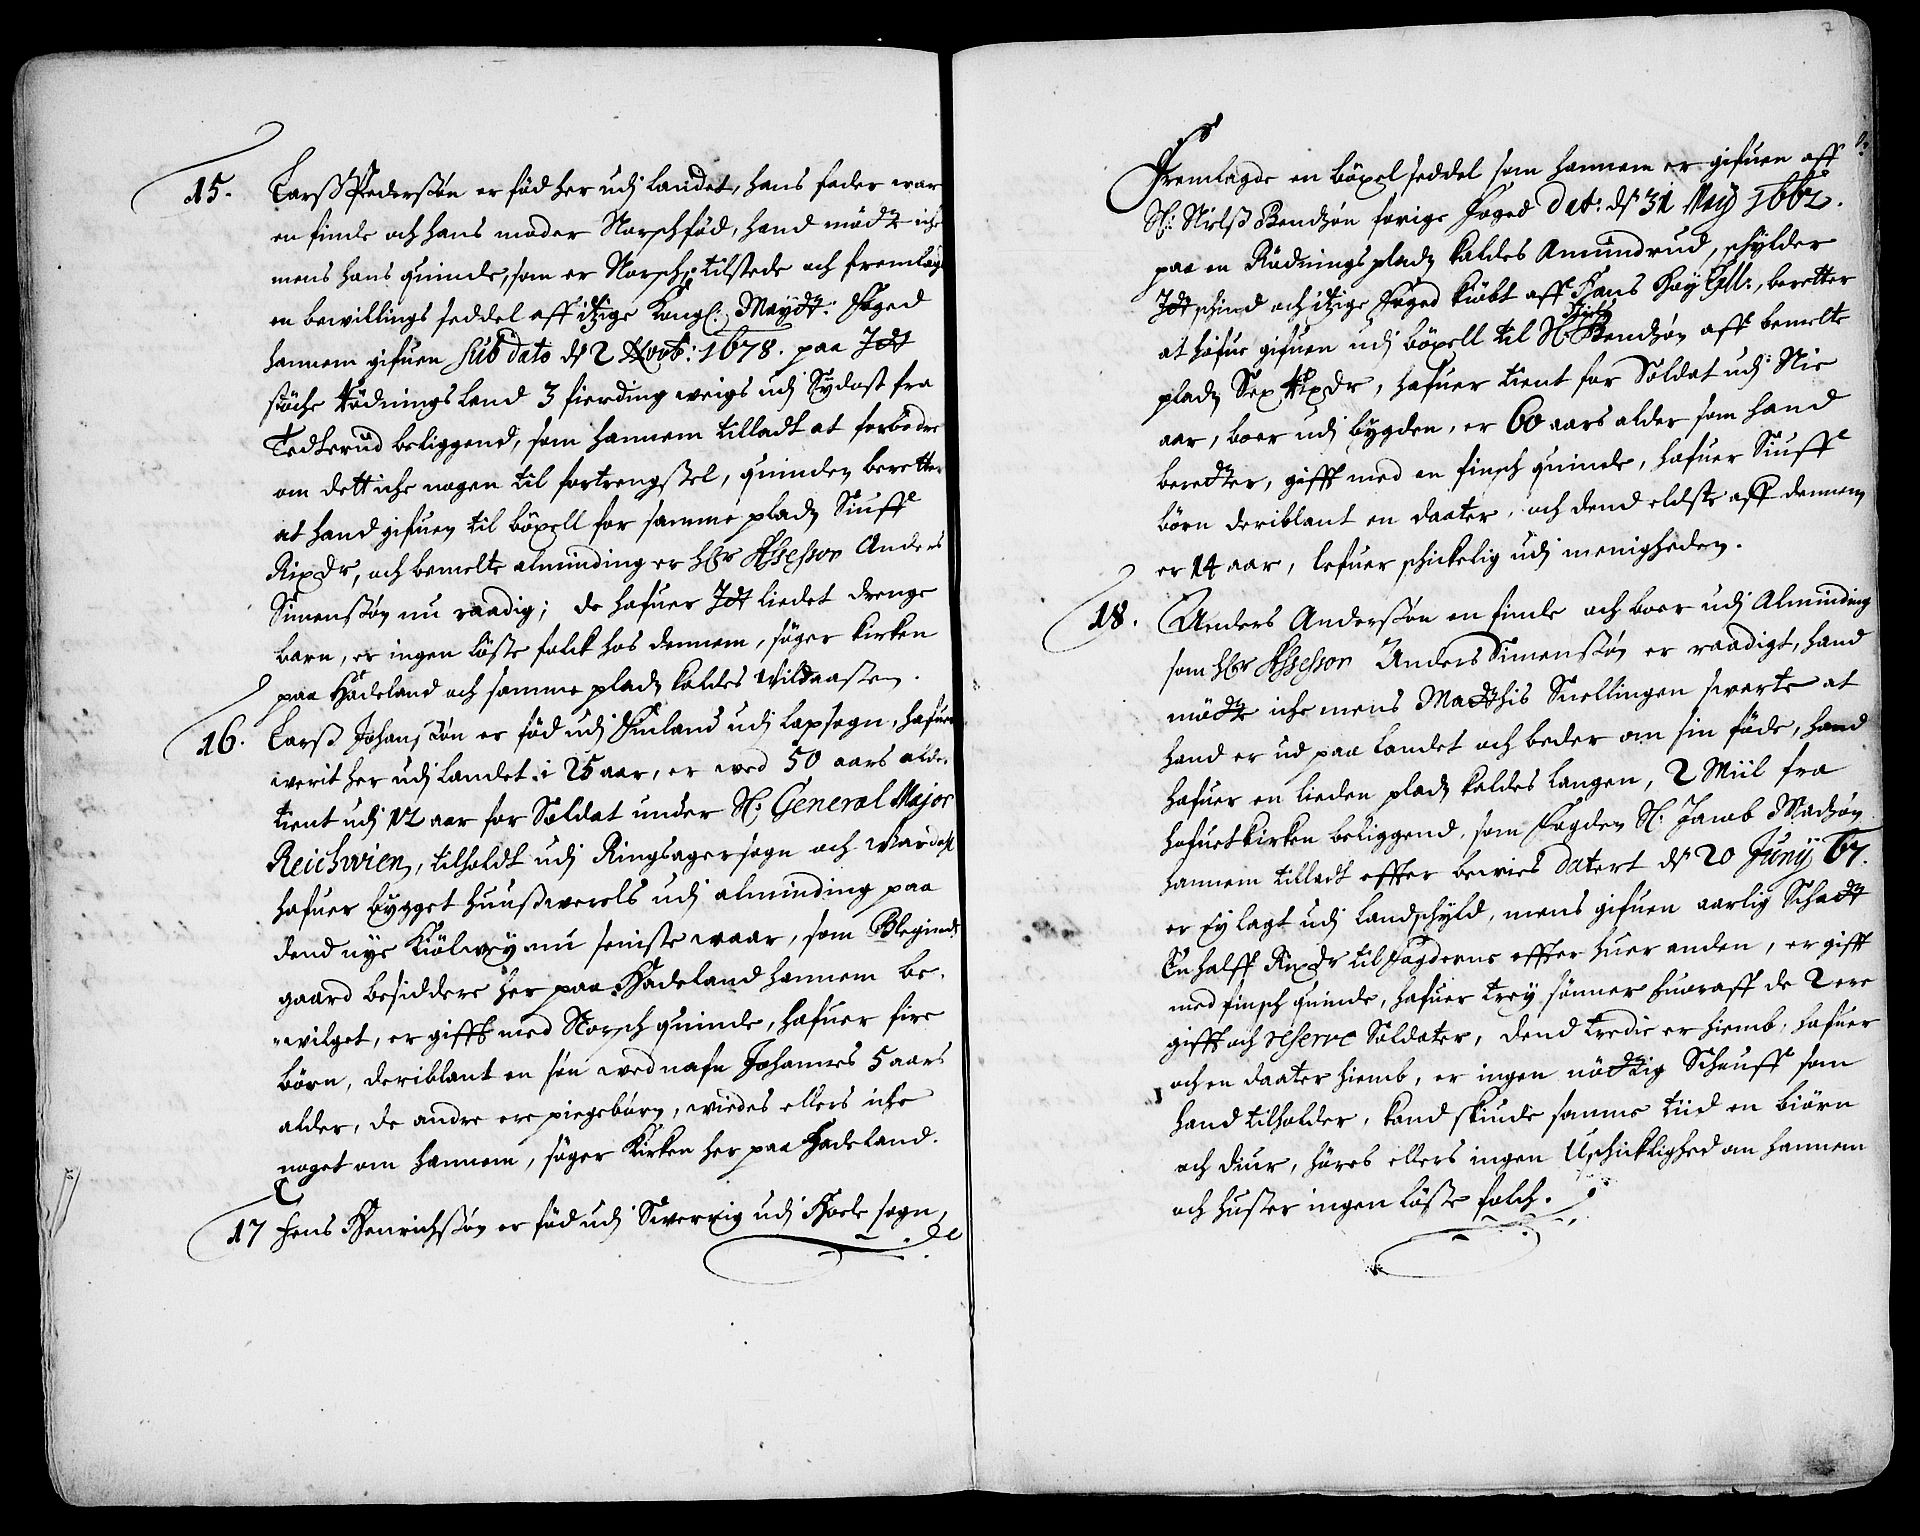 15. Larsz Pederszøn er fød her udj Landet, hans fader war
en finde och hans moder Norsch fød, hand mødte iche
mens hans quinde, som er Norsch, tilstede och fremlagde
en bewillings seddel aff itzige Kongl: Mayst: Foged
hannem gifuen sub dato dſ 2 Novb: 1678. paa Jdt
støche Rødnings Land 3 fierding weigs udj Sydost fra
Tedkerud beliggend, som hannem tilladt at forbedre
om dett iche nogen til fortrengszel, quinden beretter
at hand gifuen til böxell for samme pladz Siuff
Rixdr, och bemelte alminding er hr Assessor Anders
Simenszøn nu raadig; de hafuer Jdt liedet drenge
barn, er ingen løsse folck hos dennem, søger kirken
paa Hadeland och samme pladz kaldes Wildaassen.
16. Larsz Johanszøn er fød udj Finland udj Lapsogn, hafuer
werit her udj Landet i 25 aar, er wed 50 aars alder
tient udj 12 aar for Soldat under Sl: General Major
Reichwien, tilholdt udj Ringsager sogn och Wardahl
hafuer bygget huuszwerels udj alminding paa
dend nye Kiølwey nu seniste waar, som Bleginds
gaard besiddere her paa Hadeland hannem be-
wilget, er gifft med Norsch quinde, hafuer fire
børn, deriblant en søn wed nafn Johannes 5 aars
alder, de andre ere piegebørn, wiedes ellers iche
noget om hannem, søger Kirken her paa Hadeland.
17 Hens Henrichszøn er fød udj Swerrig udj Hoele sogn,
De
7
Fremlagde en böxel seddel som hannem er gifuen aff
Sl: Nielsz Bendzøn forige Foged dat: dſ 31 Maij 1662.
paa en Rødnings pladz kaldes Amundrud, schylder
Jdt schind och itzige Foged kiøbt aff Hans Höy Ell:, beretter
at hafue gifuen udj böxell til Sl: Nielsz Bendzøn aff bemelte
pladz Sex Rixdr, hafuer tient for Soldat udj Nie
aar, boer udj bygden, er 60 aars alder som hand
beretter, gifft med en finsch quinde, hafuer Siuff
børn deriblant en daater, och dend eldste aff dennem
er 14 aar, lefuer schickelig udj menigheden.
18. Anders Anderszøn en finde och boer udj Alminding
som hr Assessor Anders Simenszøn er raadigt, hand
mødte iche mens Matthis Snellingen swarte at
hand er ud paa Landet och beder om sin føde, hand
hafuer en lieden pladz kaldes Langen, 2 Miil fra
hofuetkirken beliggend, som Fogden Sl: Jacob Madzøn
hannem tilladt effter bewies datert dſ 20 Junij 67.
er Ey lagt udj Landschyld, mens gifuen aarlig Schatt
En halff Rixdr til Fogderne effter huer anden, er gifft
med finsch quinde, hafuer trey sønner huoraff de 2 ere
gifft och reserve Soldater, dend tredie er hiemb, hafuer
och en daater hiemb, er ingen nøttig Schouff som
hand tilholder, kand skiude somme tiid en biørn
och diur, høres ellers ingen Uschicklighed om hannem
och huser ingen løsse folch.